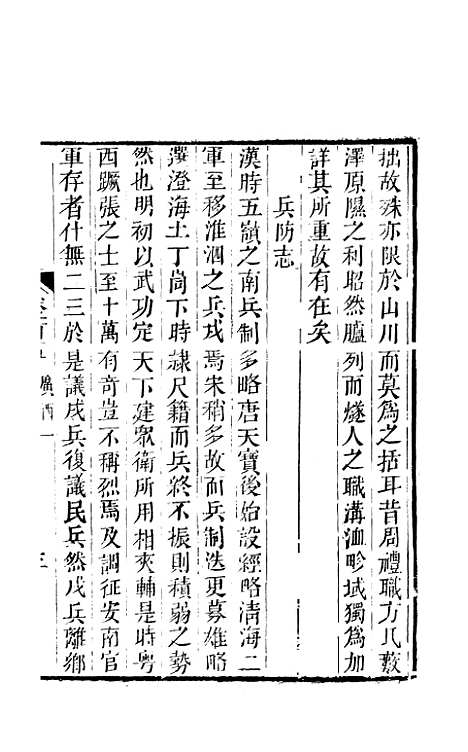 拙故殊亦限於山川而莫為之括耳昔周禮職方氏藪
澤原隰之利昭然臚列而燧人之職溝洫畛域獨為加
詳其所重故有在矣
兵防志
漢時五嶺之南兵制多略唐天寶後始設經略清海二
軍至移淮泗之兵戍焉宋稍多故而兵制迭更募雄略
選澄海土丁尚下時隸尺籍而兵終不振則積弱之勢
然也明初以武功定天下建眾衛所用相夾輔是時粵
西蹶張之士至十萬有奇豈不稱烈焉及調征安南官
軍存者什無二三於是議戍兵復議民兵然戍兵離鄉
廣西一
三